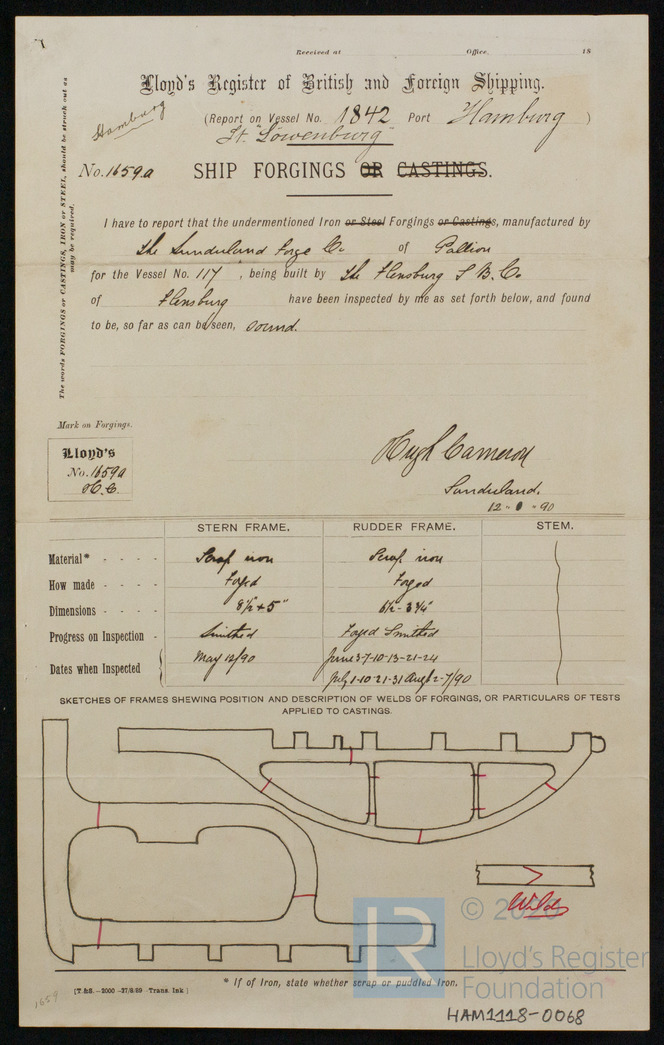 Received at Office, 18
Lloyd's Register of British and Foreign Shipping.
Hamburg
(Report on Vessel No. 1842 Port Hamburg )
St. "Löwenburg"
No. 1659a SHIP FORGINGS OR CASTINGS.
The words FORGINGS or CASTINGS, IRON or STEEL, should be struck out as
may be required.
I have to report that the undermentioned Iron or Steel Forgings or Castings, manufactured by
The Sunderland Forge Co of Pallion
for the Vessel No. 117 , being built by The Flensburg S B. Co
of Flensburg have been inspected by me as set forth below, and found
to be, so far as can be seen, sound.
Mark on Forgings.
Lloyd's
No. 1659a
H. C.
Hugh Cameron
Sunderland.
12 - - 90
STERN FRAME. RUDDER FRAME. STEM.
Material* - - - - Scrap iron Scrap iron
How made - - - - Forged Forged
Dimensions - - - - 8½ + 5" 6½ - 3¾"
Progress on Inspection - Smithed Forged Smithed
Dates when Inspected May 12/90 June 3-7-10-13-21-24
July 1-10-21-31 Augt 2-7/90
SKETCHES OF FRAMES SHEWING POSITION AND DESCRIPTION OF WELDS OF FORGINGS, OR PARTICULARS OF TESTS
APPLIED TO CASTINGS.
Welds
* If of Iron, state whether scrap or puddled Iron.
[T &S.—2000 —27/8/89 Trans. Ink ]
1659
HAM1118-0068
LR
© 2020
Lloyd's Register
Foundation